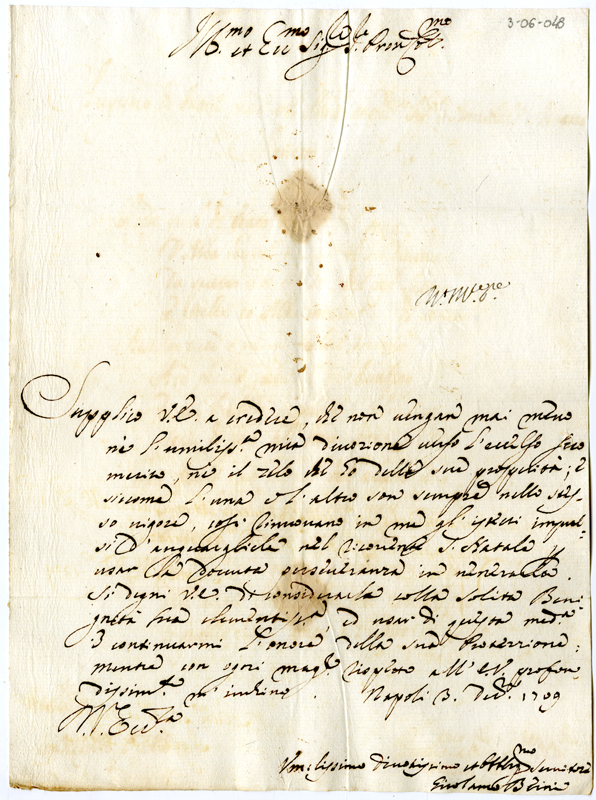 3-06-048
Ill.mo et Ecc.mo Sig.re Pron Col.mo
Supplico V.E. a credere, che non vengan mai meno
nè l'umiliss.a mia divozione verso l'eccelso suo
merito, nè il zelo che ho delle sue prosperità; E
siccome l'una e l'altro son sempre nello stes-
so vigore, così rinnovano in me gl'istessi impul-
si d'augurargliele nel ricorrente S. Natale
usar la dovuta osservanza in venerarla.
Si degni V.E. di considerarla colla solita Beni-
gnità sua clementiss.a ed usar di questa med.a
continuarmi l'onore della sua Protezzione;
mentre con ogni magg.r rispetto all'E.V. profon-
dissim.te m'inchino. Napoli 3. Dic.e 1709
Umilissimo divotissimo et Obblig.mo Servitore
Girolamo